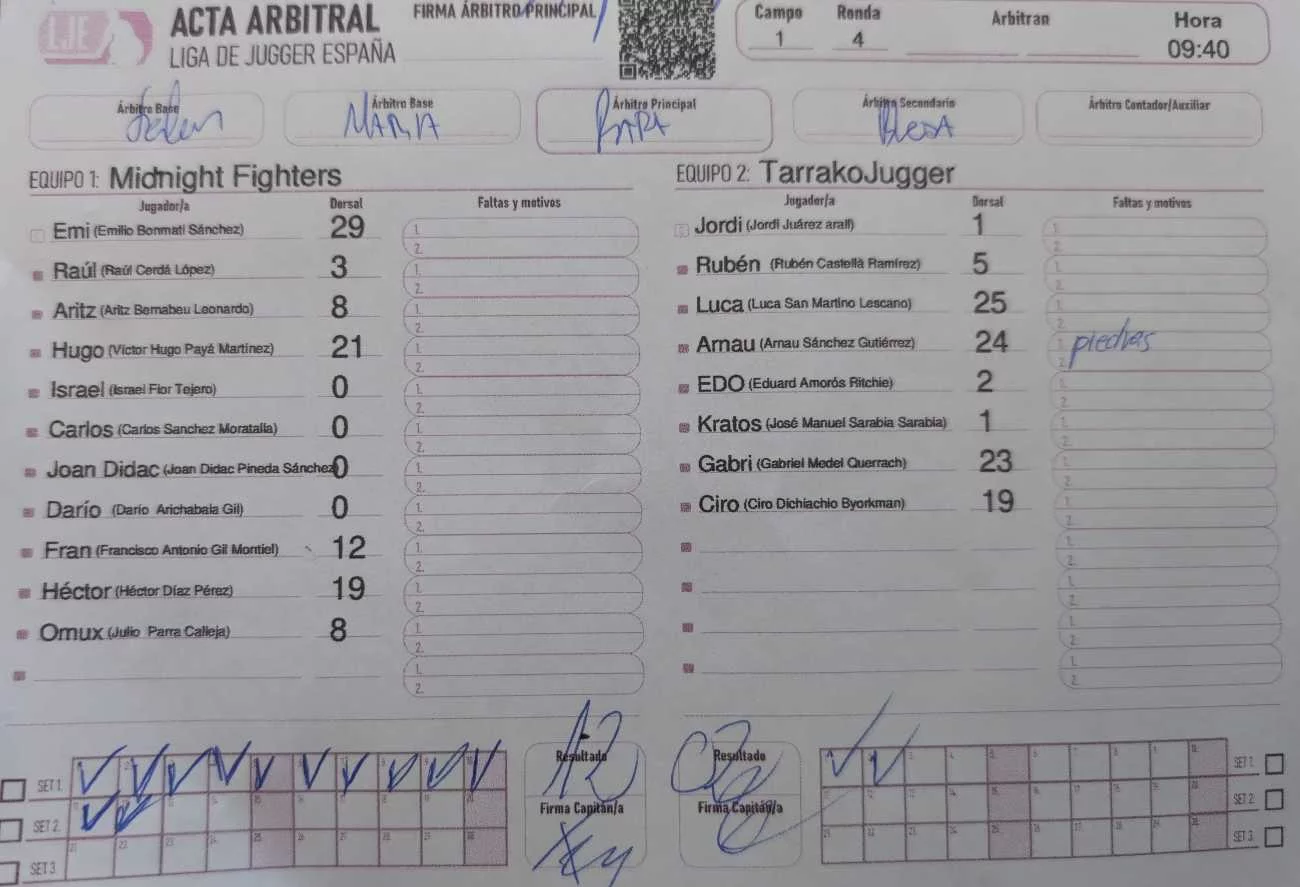 LJE
ACTA ARBITRAL
LIGA DE JUGGER ESPAÑA
FIRMA ÁRBITRO PRINCIPAL
Campo Ronda Arbitran Hora
1 4 09:40
Árbitro Base Árbitro Base Árbitro Principal Árbitro Secundario Árbitro Contador/Auxiliar
MARIA
EQUIPO 1: Midnight Fighters
Jugador/a Dorsal Faltas y motivos
Emi (Emilio Bonmatí Sánchez) 29 1. 2.
Raúl (Raúl Cerdá López) 3 1. 2.
Aritz (Aritz Bernabeu Leonardo) 8 1. 2.
Hugo (Víctor Hugo Payá Martínez) 21 1. 2.
Israel (Israel Flor Tejero) 0 1. 2.
Carlos (Carlos Sanchez Moratalla) 0 1. 2.
Joan Didac (Joan Didac Pineda Sánchez) 0 1. 2.
Darío (Darío Arichabala Gil) 0 1. 2.
Fran (Francisco Antonio Gil Montiel) 12 1. 2.
Héctor (Héctor Díaz Pérez) 19 1. 2.
Omux (Julio Parra Calleja) 8 1. 2.
1. 2.
EQUIPO 2: TarrakoJugger
Jugador/a Dorsal Faltas y motivos
Jordi (Jordi Juárez aralf) 1 1. 2.
Rubén (Rubén Castellà Ramírez) 5 1. 2.
Luca (Luca San Martino Lescano) 25 1. 2.
Arnau (Arnau Sánchez Gutiérrez) 24 1. piedras 2.
EDO (Eduard Amorós Ritchie) 2 1. 2.
Kratos (José Manuel Sarabia Sarabia) 1 1. 2.
Gabri (Gabriel Medel Querrach) 23 1. 2.
Ciro (Ciro Dichiachio Byorkman) 19 1. 2.
1. 2.
1. 2.
1. 2.
1. 2.
SET 1
SET 2
SET 3
Resultado
12
Firma Capitán/a
Resultado
02
Firma Capitán/a
SET 1
SET 2
SET 3